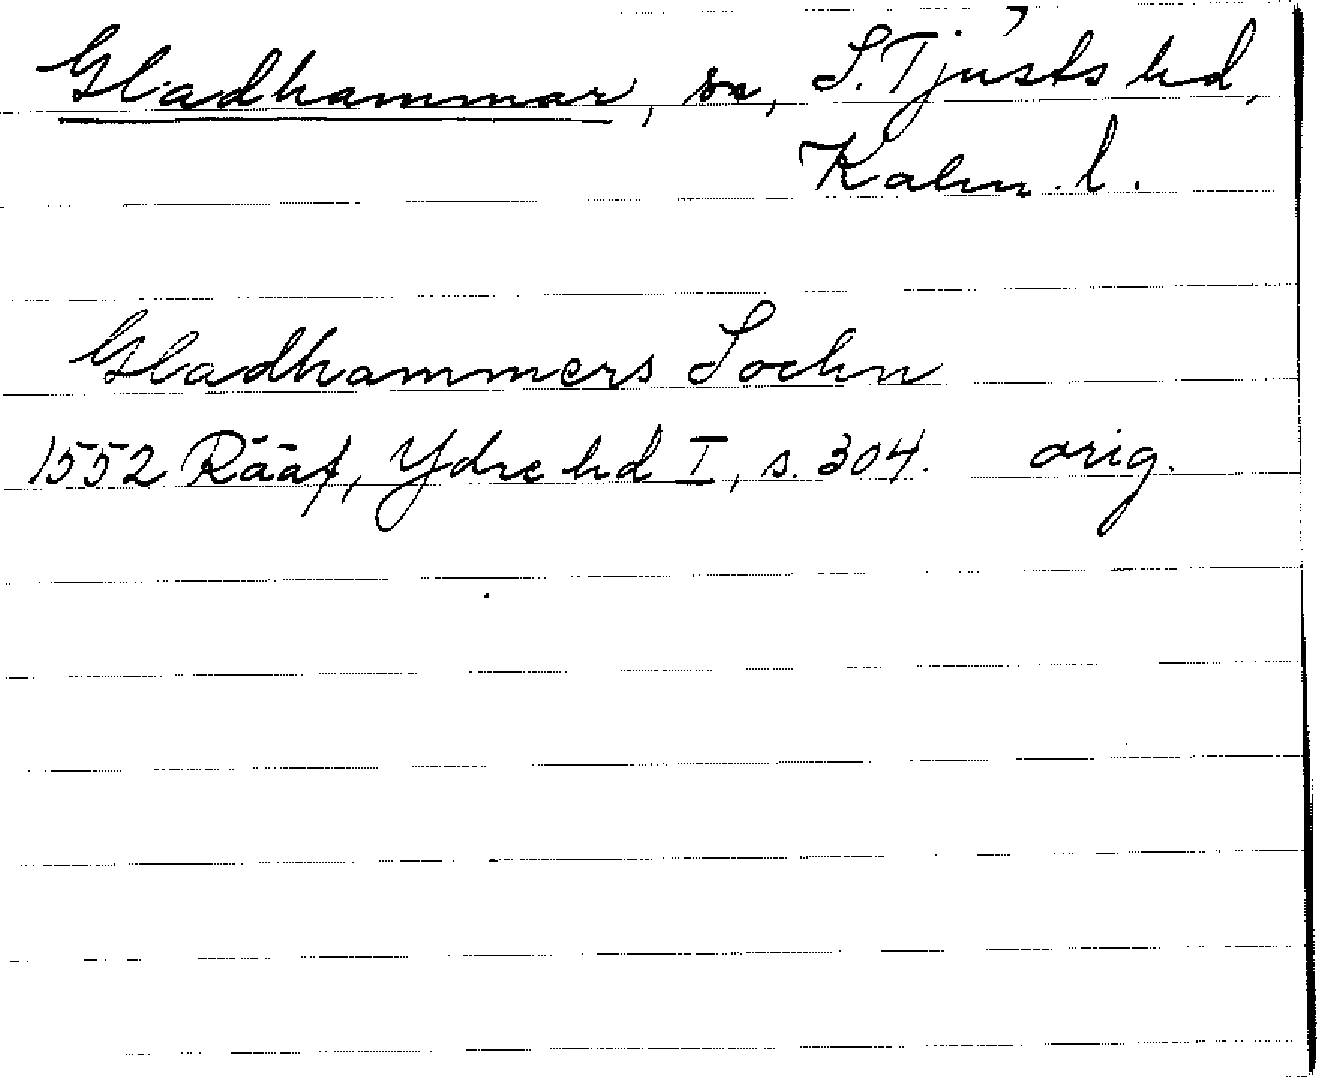 Gladhammar, sn, S. Tjusts hd,
Kalm. l.
Gladhammers Sochn
1552 Rääf, Ydre hd I, s. 304. orig.